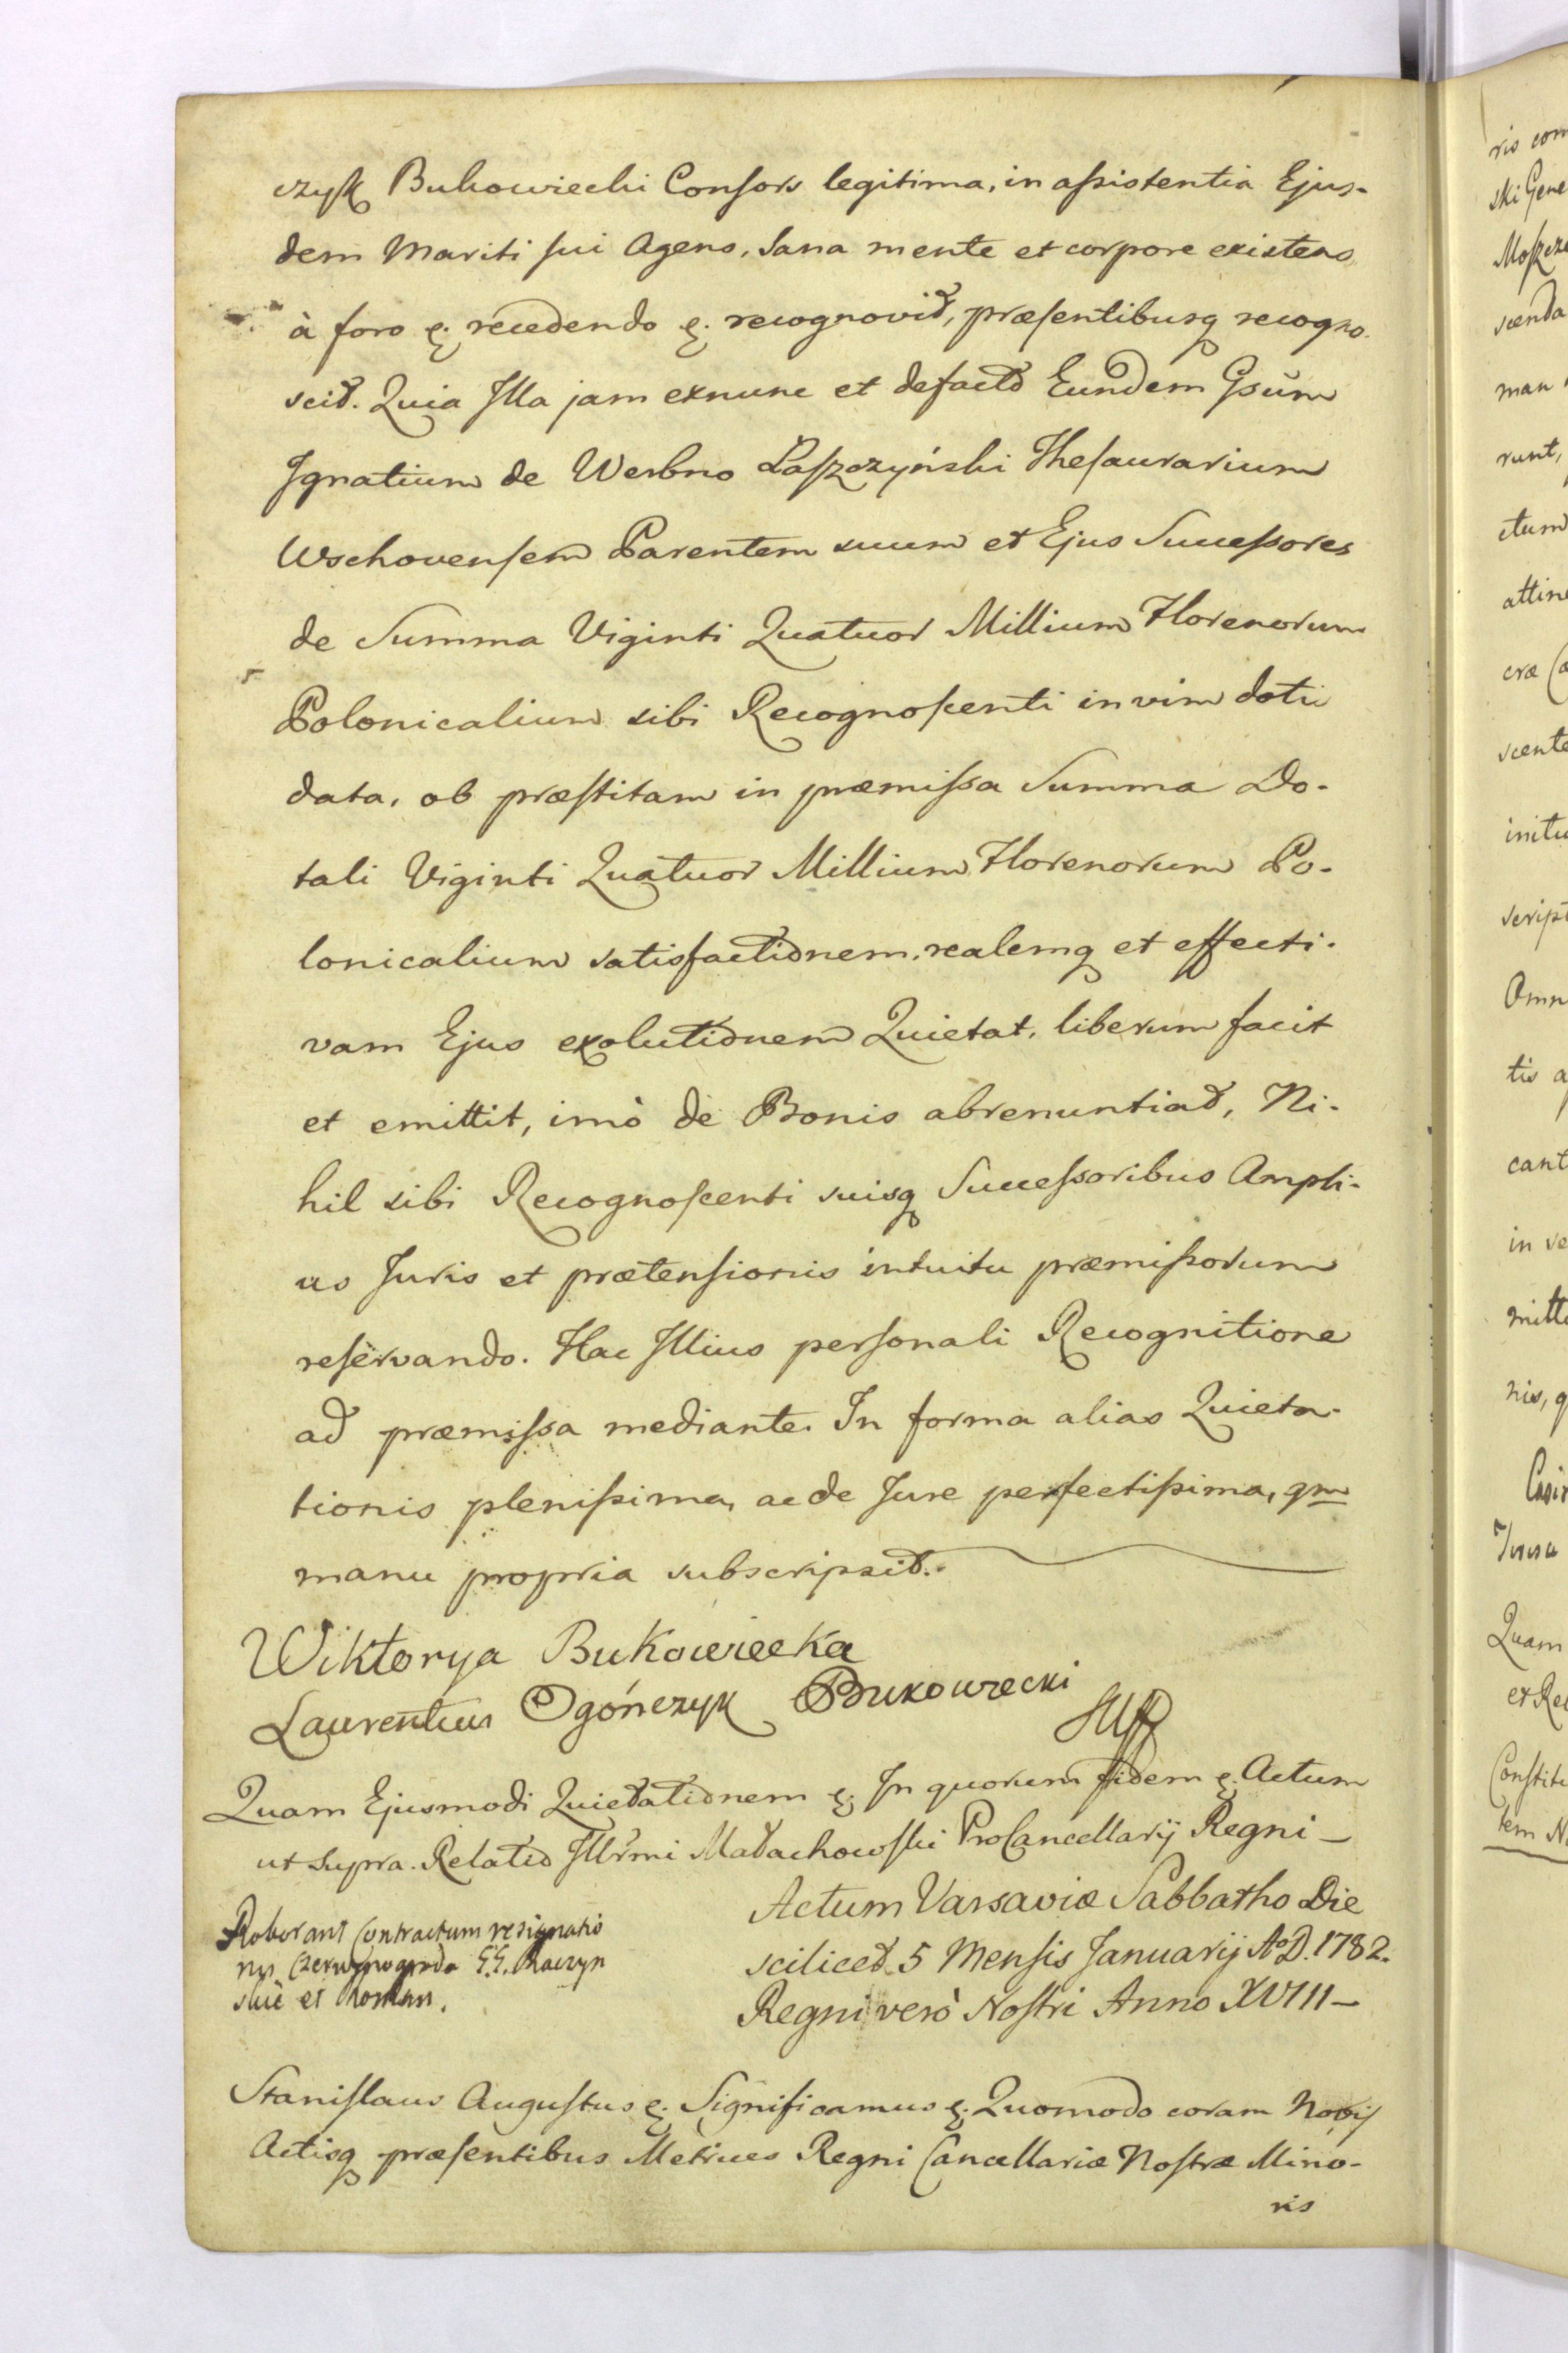 czyk Bukowiecki Consors legitima, in assistentia Ejus-
dem Mariti sui Agens, sana mente et corpore existens
à foro &. recedendo &. recognovit, præsentibusq recogno-
scit. Quia Illa jam exnunc et defacto Eundem Gsūm
Ignatium de Werbno Paszczyński Thesaurarium
Wschovensem Parentem suum et Ejus Successores
de Summa Viginti Quatuor Millium Florenorum
Polonicalium sibi Recognoscenti in vim dotis
data, ob præstitam in præmissa Summa Do-
tali Viginti Quatuor Millium Florenorum Po-
lonicalium satisfactionem, realemq et effecti-
vam Ejus exolutionem Quietat, liberum facit
et emittit, imò de Bonis abrenuntiat, Ni-
hil sibi Recognoscenti suisq Successoribus Ampli-
us Juris et prætensionis intuitu præmissorum
reservando. Hac Illius personali Recognitione
ad præmissa mediante. In forma alias Quieta-
tionis plenissima, ac de Jure perfectissima, qm
manu propria subscripsit.
Wiktorya Bukowiecka
Laurentius Ogończyk Bukowiecki
Quam Ejusmodi Quietationem &. In quorum fidem &. Actum
ut supra. Relatio Illrmi Małachowski ProCancellarij Regni —
Actum Varsaviæ Sabbatho Die
scilicet 5 Mensis Januarij Ao D. 1782.
Regni verò Nostri Anno XVIII —
Roborant Contractum resignatio
nis Czerwonogrodo G.G. Raczyn
skie et Roman.
Stanislaus Augustus &. Significamus &. Quomodo coram Nobis
Actisq præsentibus Metrices Regni Cancellariæ Nostræ Mino-
ris